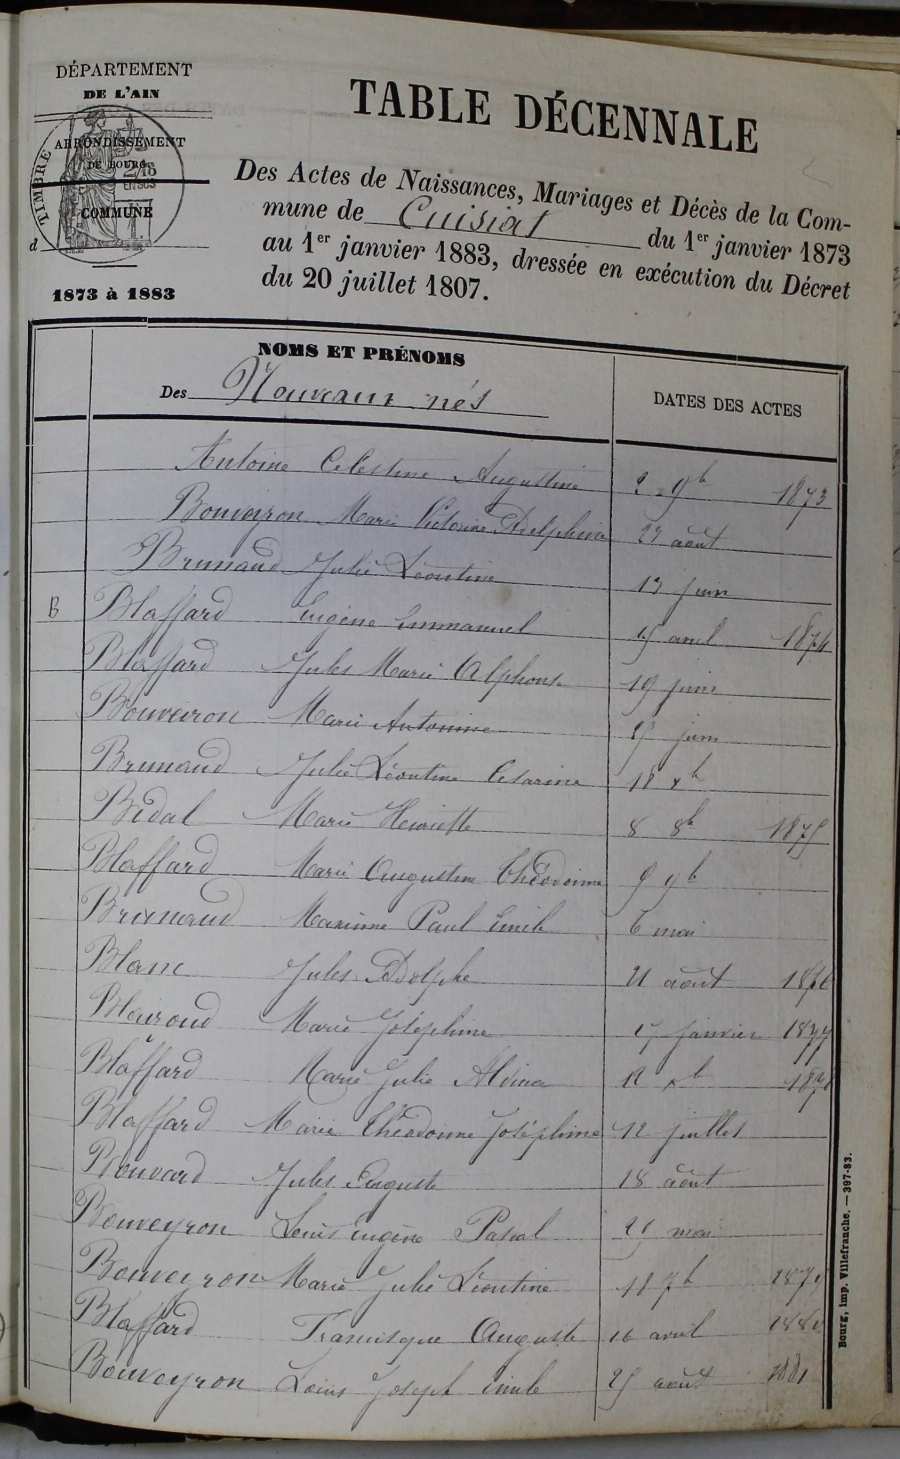 DÉPARTEMENT
DE L'AIN
ARRONDISSEMENT
DE BOURG
TIMBRE
COMMUNE
d
1873 à 1883
TABLE DÉCENNALE
Des Actes de Naissances, Mariages et Décès de la Com-
mune de Cuisiat du 1er janvier 1873
au 1er janvier 1883, dressée en exécution du Décret
du 20 juillet 1807.
NOMS ET PRÉNOMS
Des Nouveaux nés
DATES DES ACTES
Antoine Celestine Augustine 2 9b 1873
Bouveyron Marie Victorine Delphine 23 août
Brunaud Julie Léontine 13 juin
B Blaffard Eugène Emmanuel avril 1874
Blaffard Jules Marie Alphonse 19 juin
Bouveiron Marie Antonine juin
Brunaud Julie Léontine Césarine 18 xb
Bidal Marie Henriette 8 8b 1875
Blaffard Marie Augustine Théodorine 9 9b
Brunaud Maxime Paul Emile 6 mai
Blanc Jules Adolphe 21 août 1876
Marie Joséphine janvier 1877
Blaffard Marie Julie Alvina 12 xb
Blaffard Marie Théodorine Joséphine 12 juillet
Bouvard Jules Auguste 18 août
Bouveyron Louis Eugène Pascal mai
Bouveyron Marie Julie Léontine 7b
Blaffard Francisque Auguste 16 avril
Bouveyron Louis Joseph Emile août 1881
Bourg, imp. Villefranche. — 397-83.